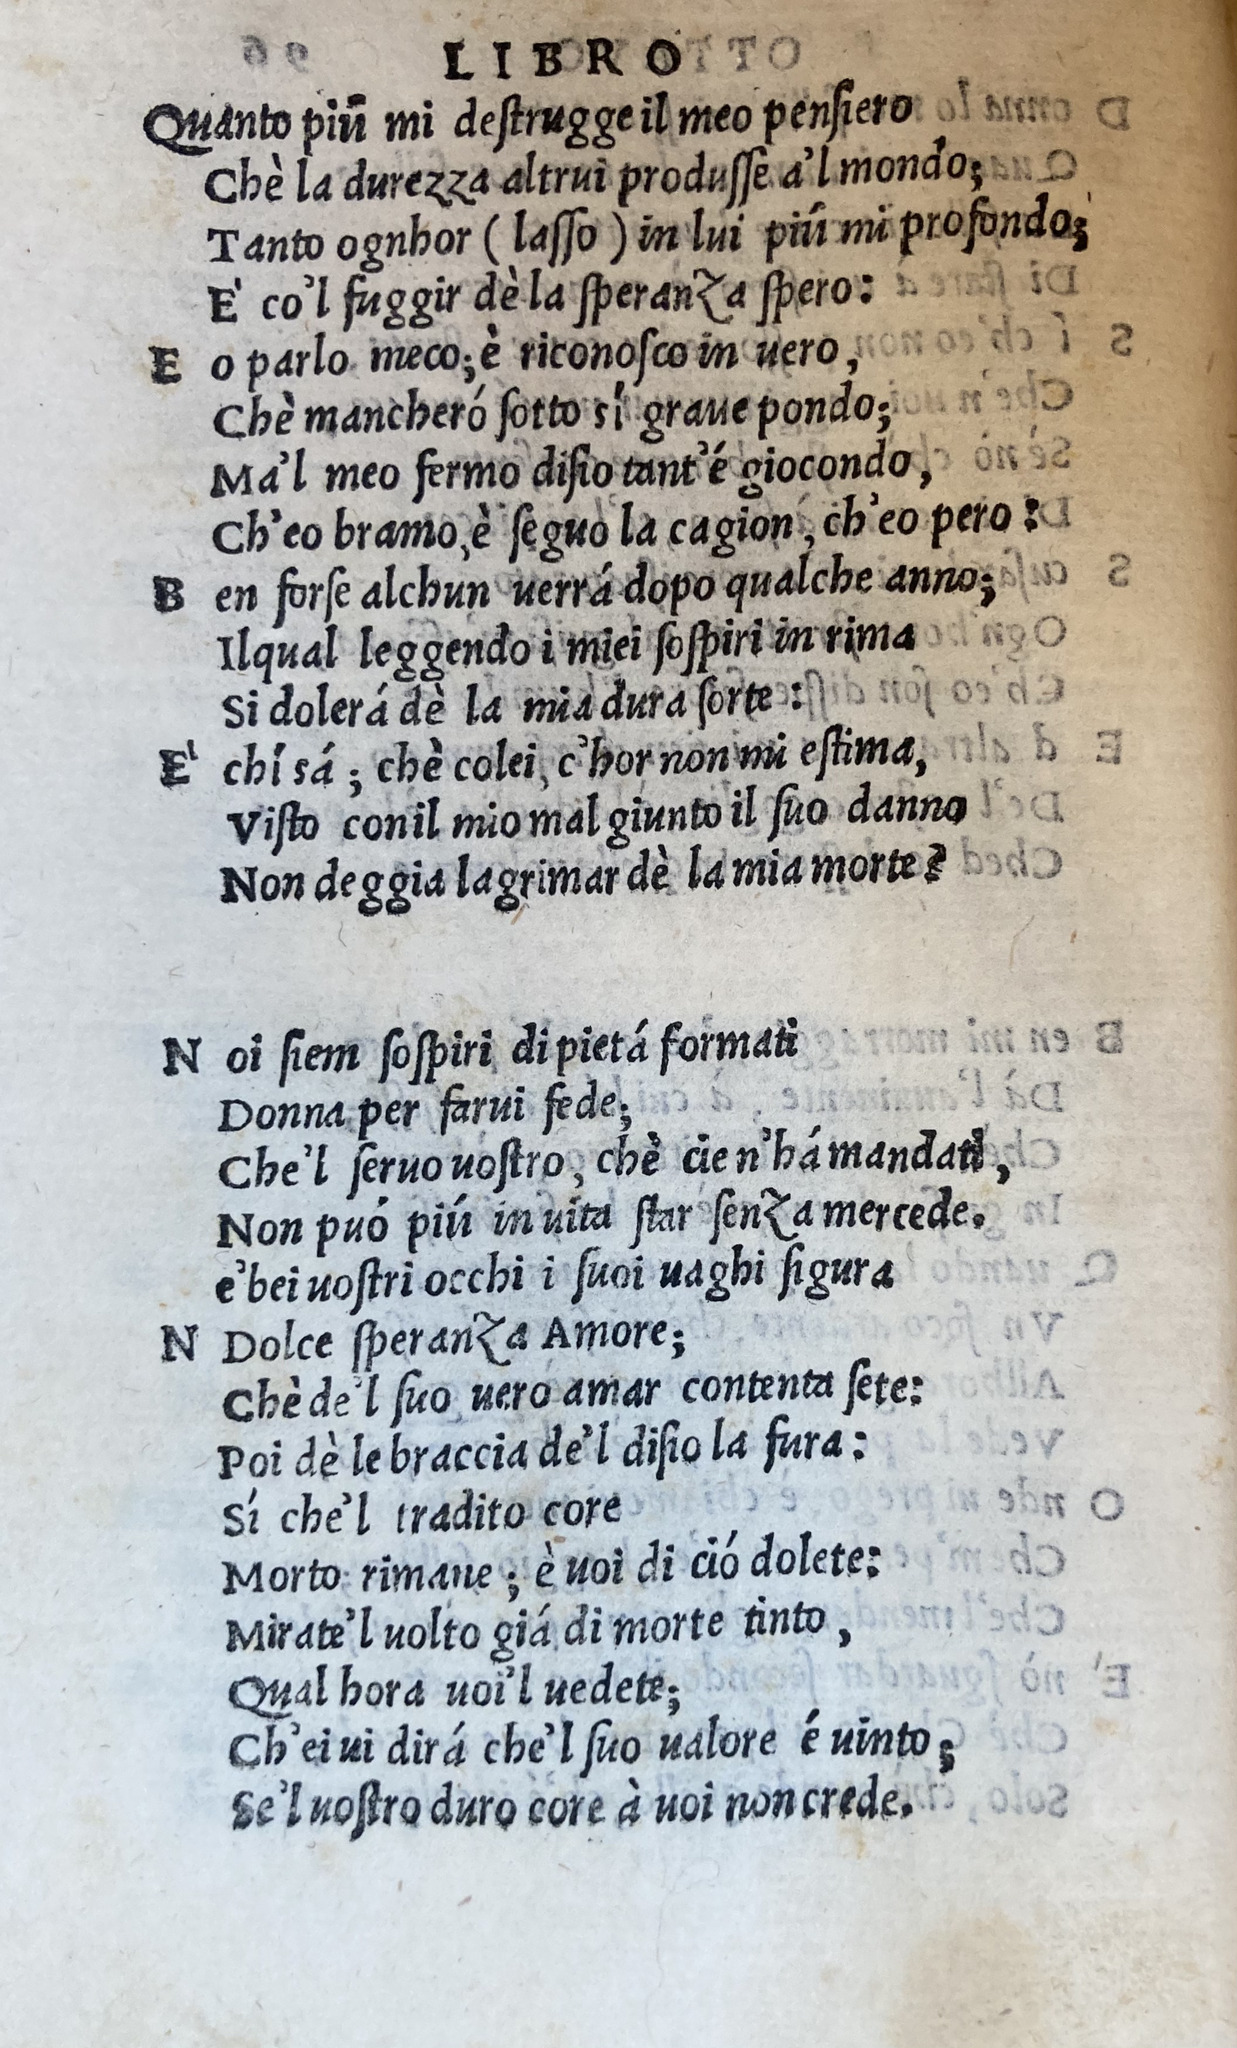 LIBRO
Quanto piú mi deſtrugge il meo penſiero
Chè la durezza altrui produſſe a'l mondo;
Tanto ognhor ( laſſo ) in lui piú mi profondo;
E' co'l fuggir dè la ſperanza ſpero:
E o parlo meco; è riconoſco in uero,
Chè mancheró ſotto sí graue pondo;
Ma'l meo fermo diſio tant'é giocondo,
Ch'eo bramo, è ſeguo la cagion, ch'eo pero:
B en forſe alchun uerrá dopo qualche anno;
Ilqual leggendo i miei ſoſpiri in rima
Si dolerá dè la mia dura ſorte:
E' chí sá; chè colei, c'hor non mi eſtima,
Viſto con il mio mal giunto il ſuo danno
Non deggia lagrimar dè la mia morte?
N oi ſiem ſoſpiri di pietá formati
Donna per farui fede;
Che'l ſeruo uoſtro, chè cie n'há mandati,
Non puó piú in uita ſtar ſenza mercede.
e'bei uoſtri occhi i ſuoi uaghi figura
N Dolce ſperanza Amore;
Chè de'l ſuo uero amar contenta ſete:
Poi dè le braccia de'l diſio la fura:
Sí che'l tradito core
Morto rimane; è uoi di ció dolete:
Mirate'l uolto giá di morte tinto,
Qual hora uoi'l uedete;
Ch'ei ui dirá che'l ſuo ualore é uinto;
Se'l uoſtro duro core à uoi non crede.